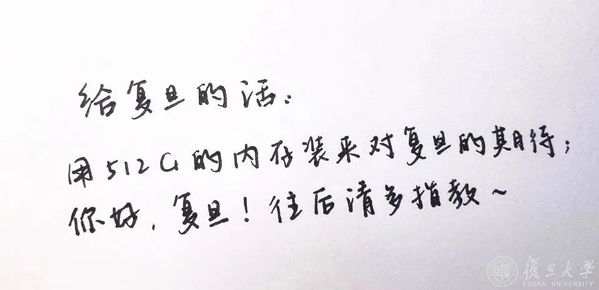 给复旦的话:
用512G的内存装来对复旦的期待;
你好,复旦!往后请多指教~
復旦大學
FUDAN UNIVERSITY